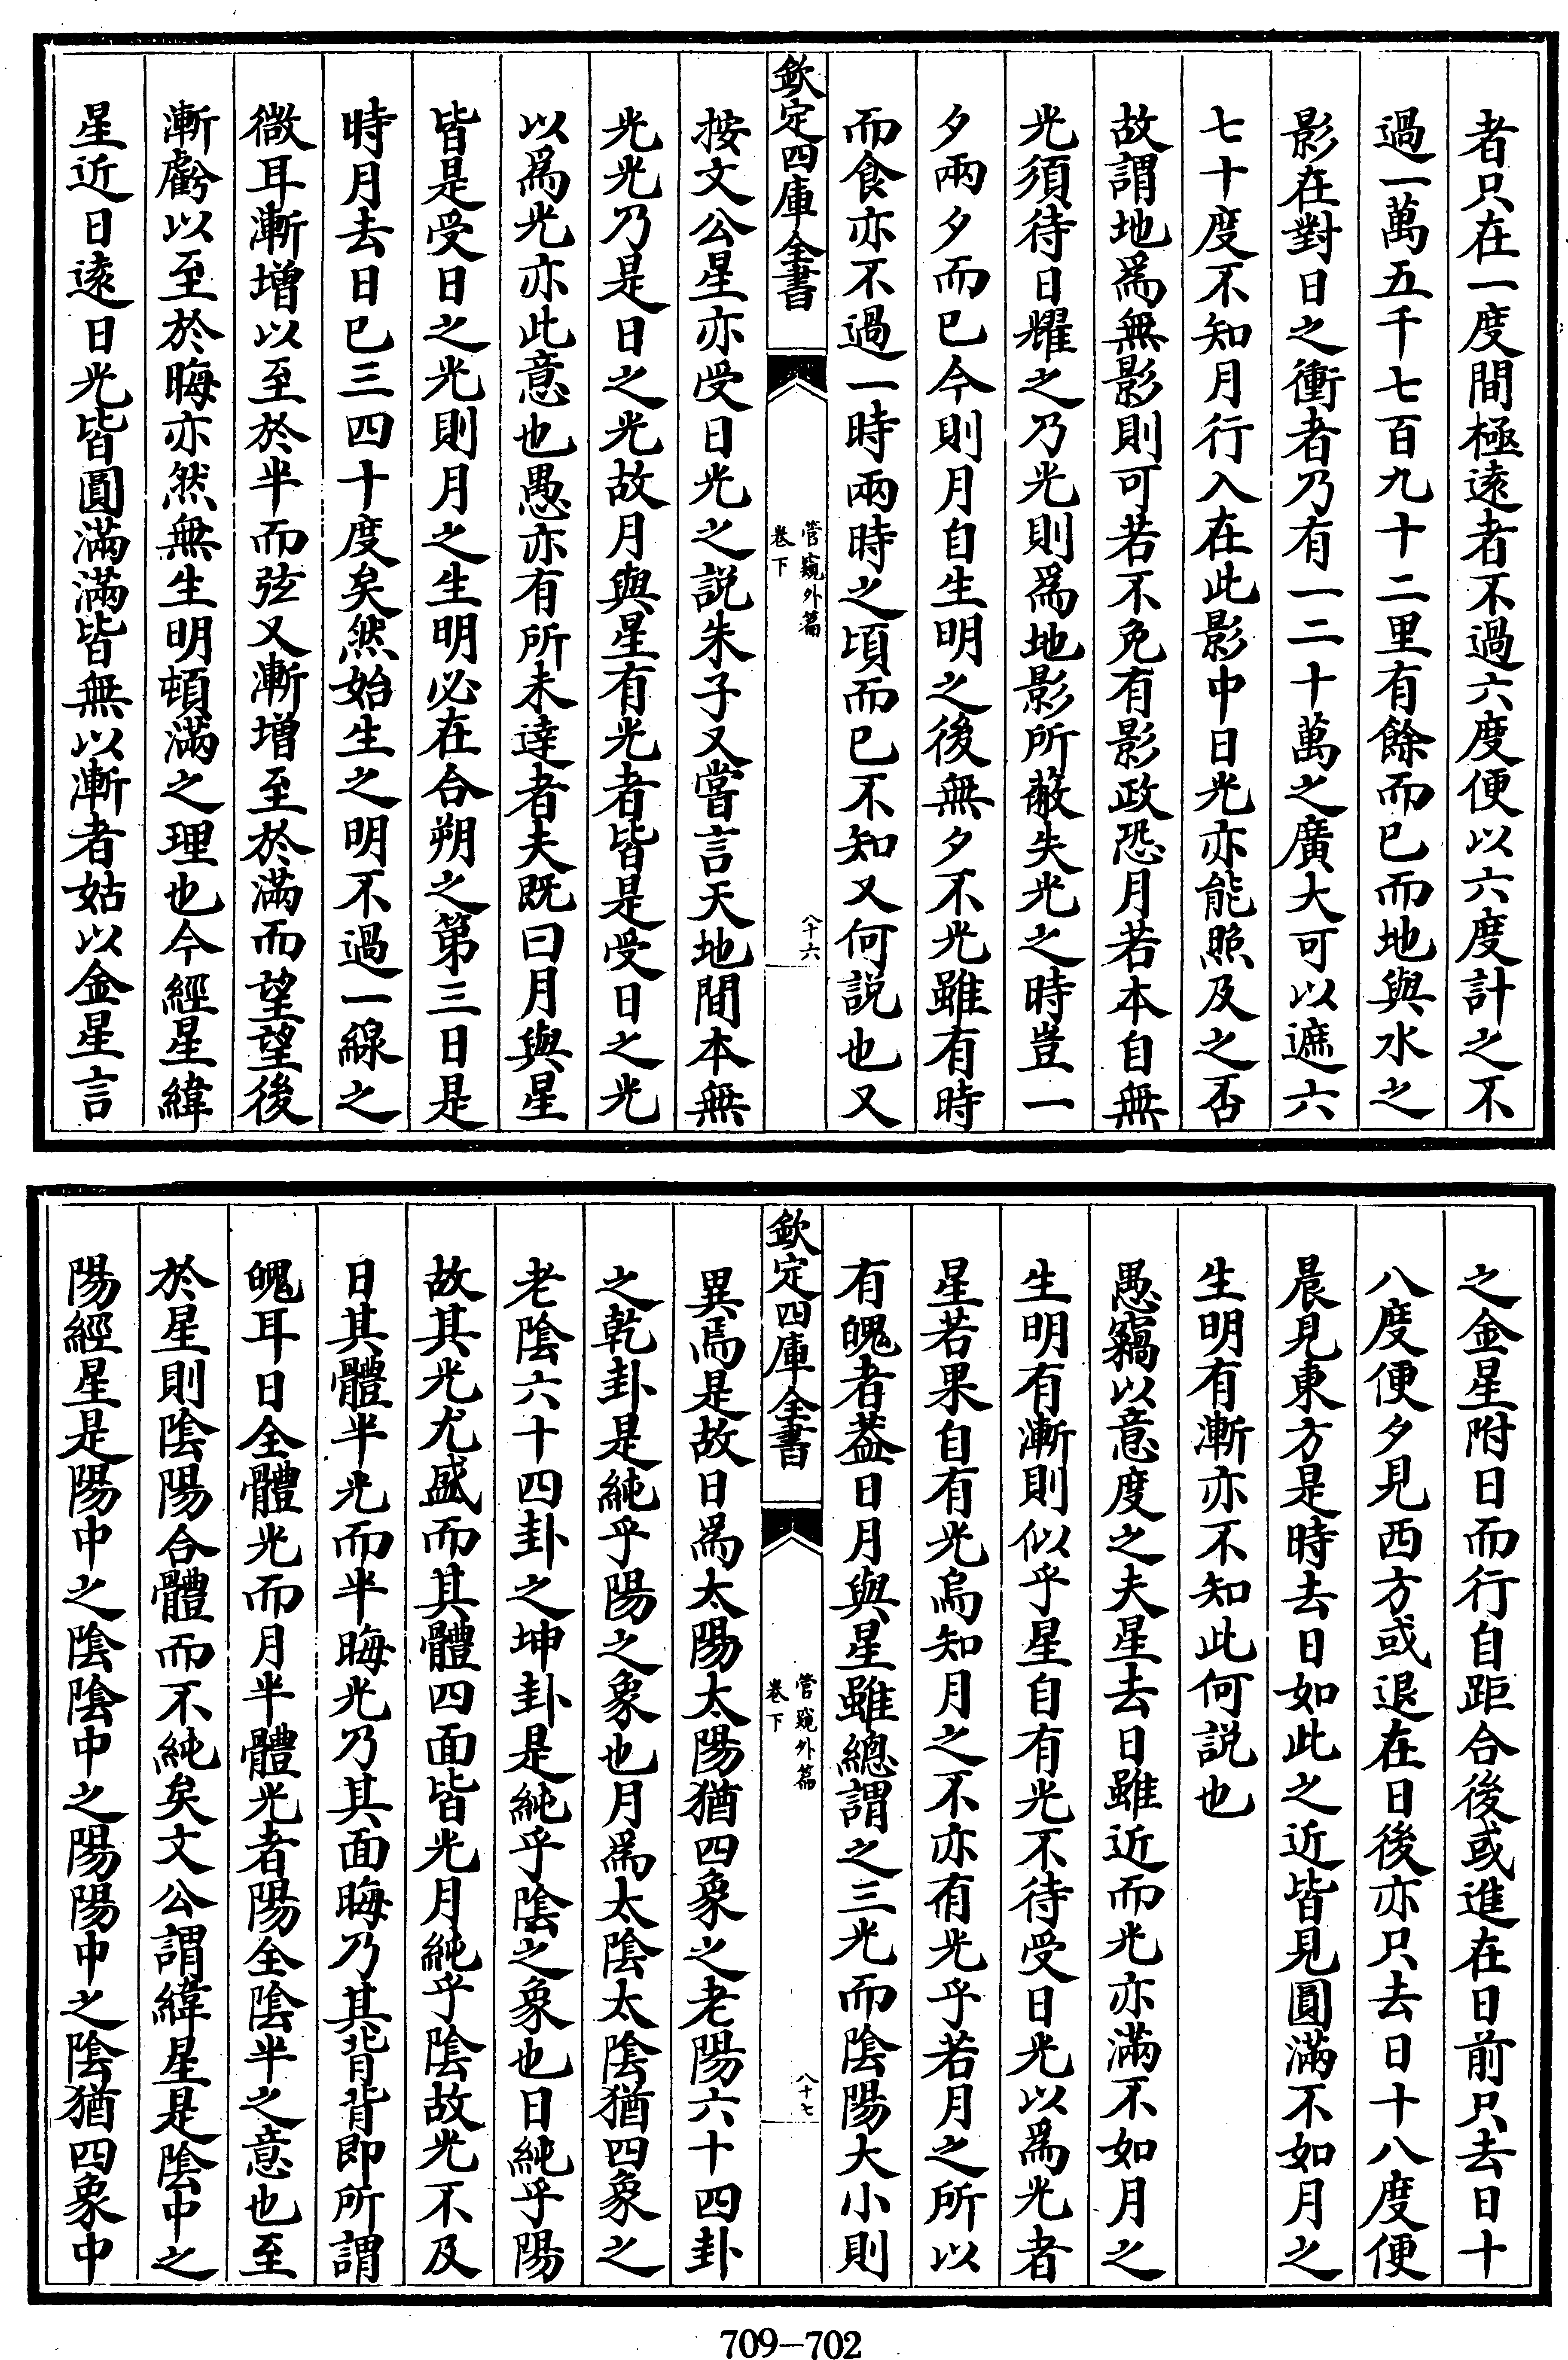 者只在一度間極遠者不過六度便以六度計之不
過一萬五千七百九十二里有餘而已而地與水之
影在對日之衝者乃有一二十萬之廣大可以遮六
七十度不知月行入在此影中日光亦能照及之否
故謂地爲無影則可若不免有影政恐月若本自無
光須待日耀之乃光則爲地影所蔽失光之時豈一
夕兩夕而已今則月自生明之後無夕不光雖有時
而食亦不過一時兩時之頃而已不知又何説也又
欽定四庫全書
管窺外篇
卷下
八十六
按文公星亦受日光之説朱子又嘗言天地間本無
光光乃是日之光故月與星有光者皆是受日之光
以爲光亦此意也愚亦有所未達者夫既曰月與星
皆是受日之光則月之生明必在合朔之第三日是
時月去日已三四十度矣然始生之明不過一線之
微耳漸增以至於半而弦又漸增至於滿而望望後
漸虧以至於晦亦然無生明頓滿之理也今經星緯
星近日遠日光皆圓滿滿皆無以漸者姑以金星言
之金星附日而行自距合後或進在日前只去日十
八度便夕見西方或退在日後亦只去日十八度便
晨見東方是時去日如此之近皆見圓滿不如月之
生明有漸亦不知此何説也
愚竊以意度之夫星去日雖近而光亦滿不如月之
生明有漸則似乎星自有光不待受日光以爲光者
星若果自有光烏知月之不亦有光乎若月之所以
有魄者葢日月與星雖總謂之三光而陰陽大小則
欽定四庫全書
管窺外篇
卷下
八十七
異焉是故日爲太陽太陽猶四象之老陽六十四卦
之乾卦是純乎陽之象也月爲太陰太陰猶四象之
老陰六十四卦之坤卦是純乎陰之象也日純乎陽
故其光尤盛而其體四面皆光月純乎陰故光不及
日其體半光而半晦光乃其面晦乃其背背即所謂
魄耳日全體光而月半體光者陽全陰半之意也至
於星則陰陽合體而不純矣文公謂緯星是陰中之
陽經星是陽中之陰陰中之陽陽中之陰猶四象中
709-702